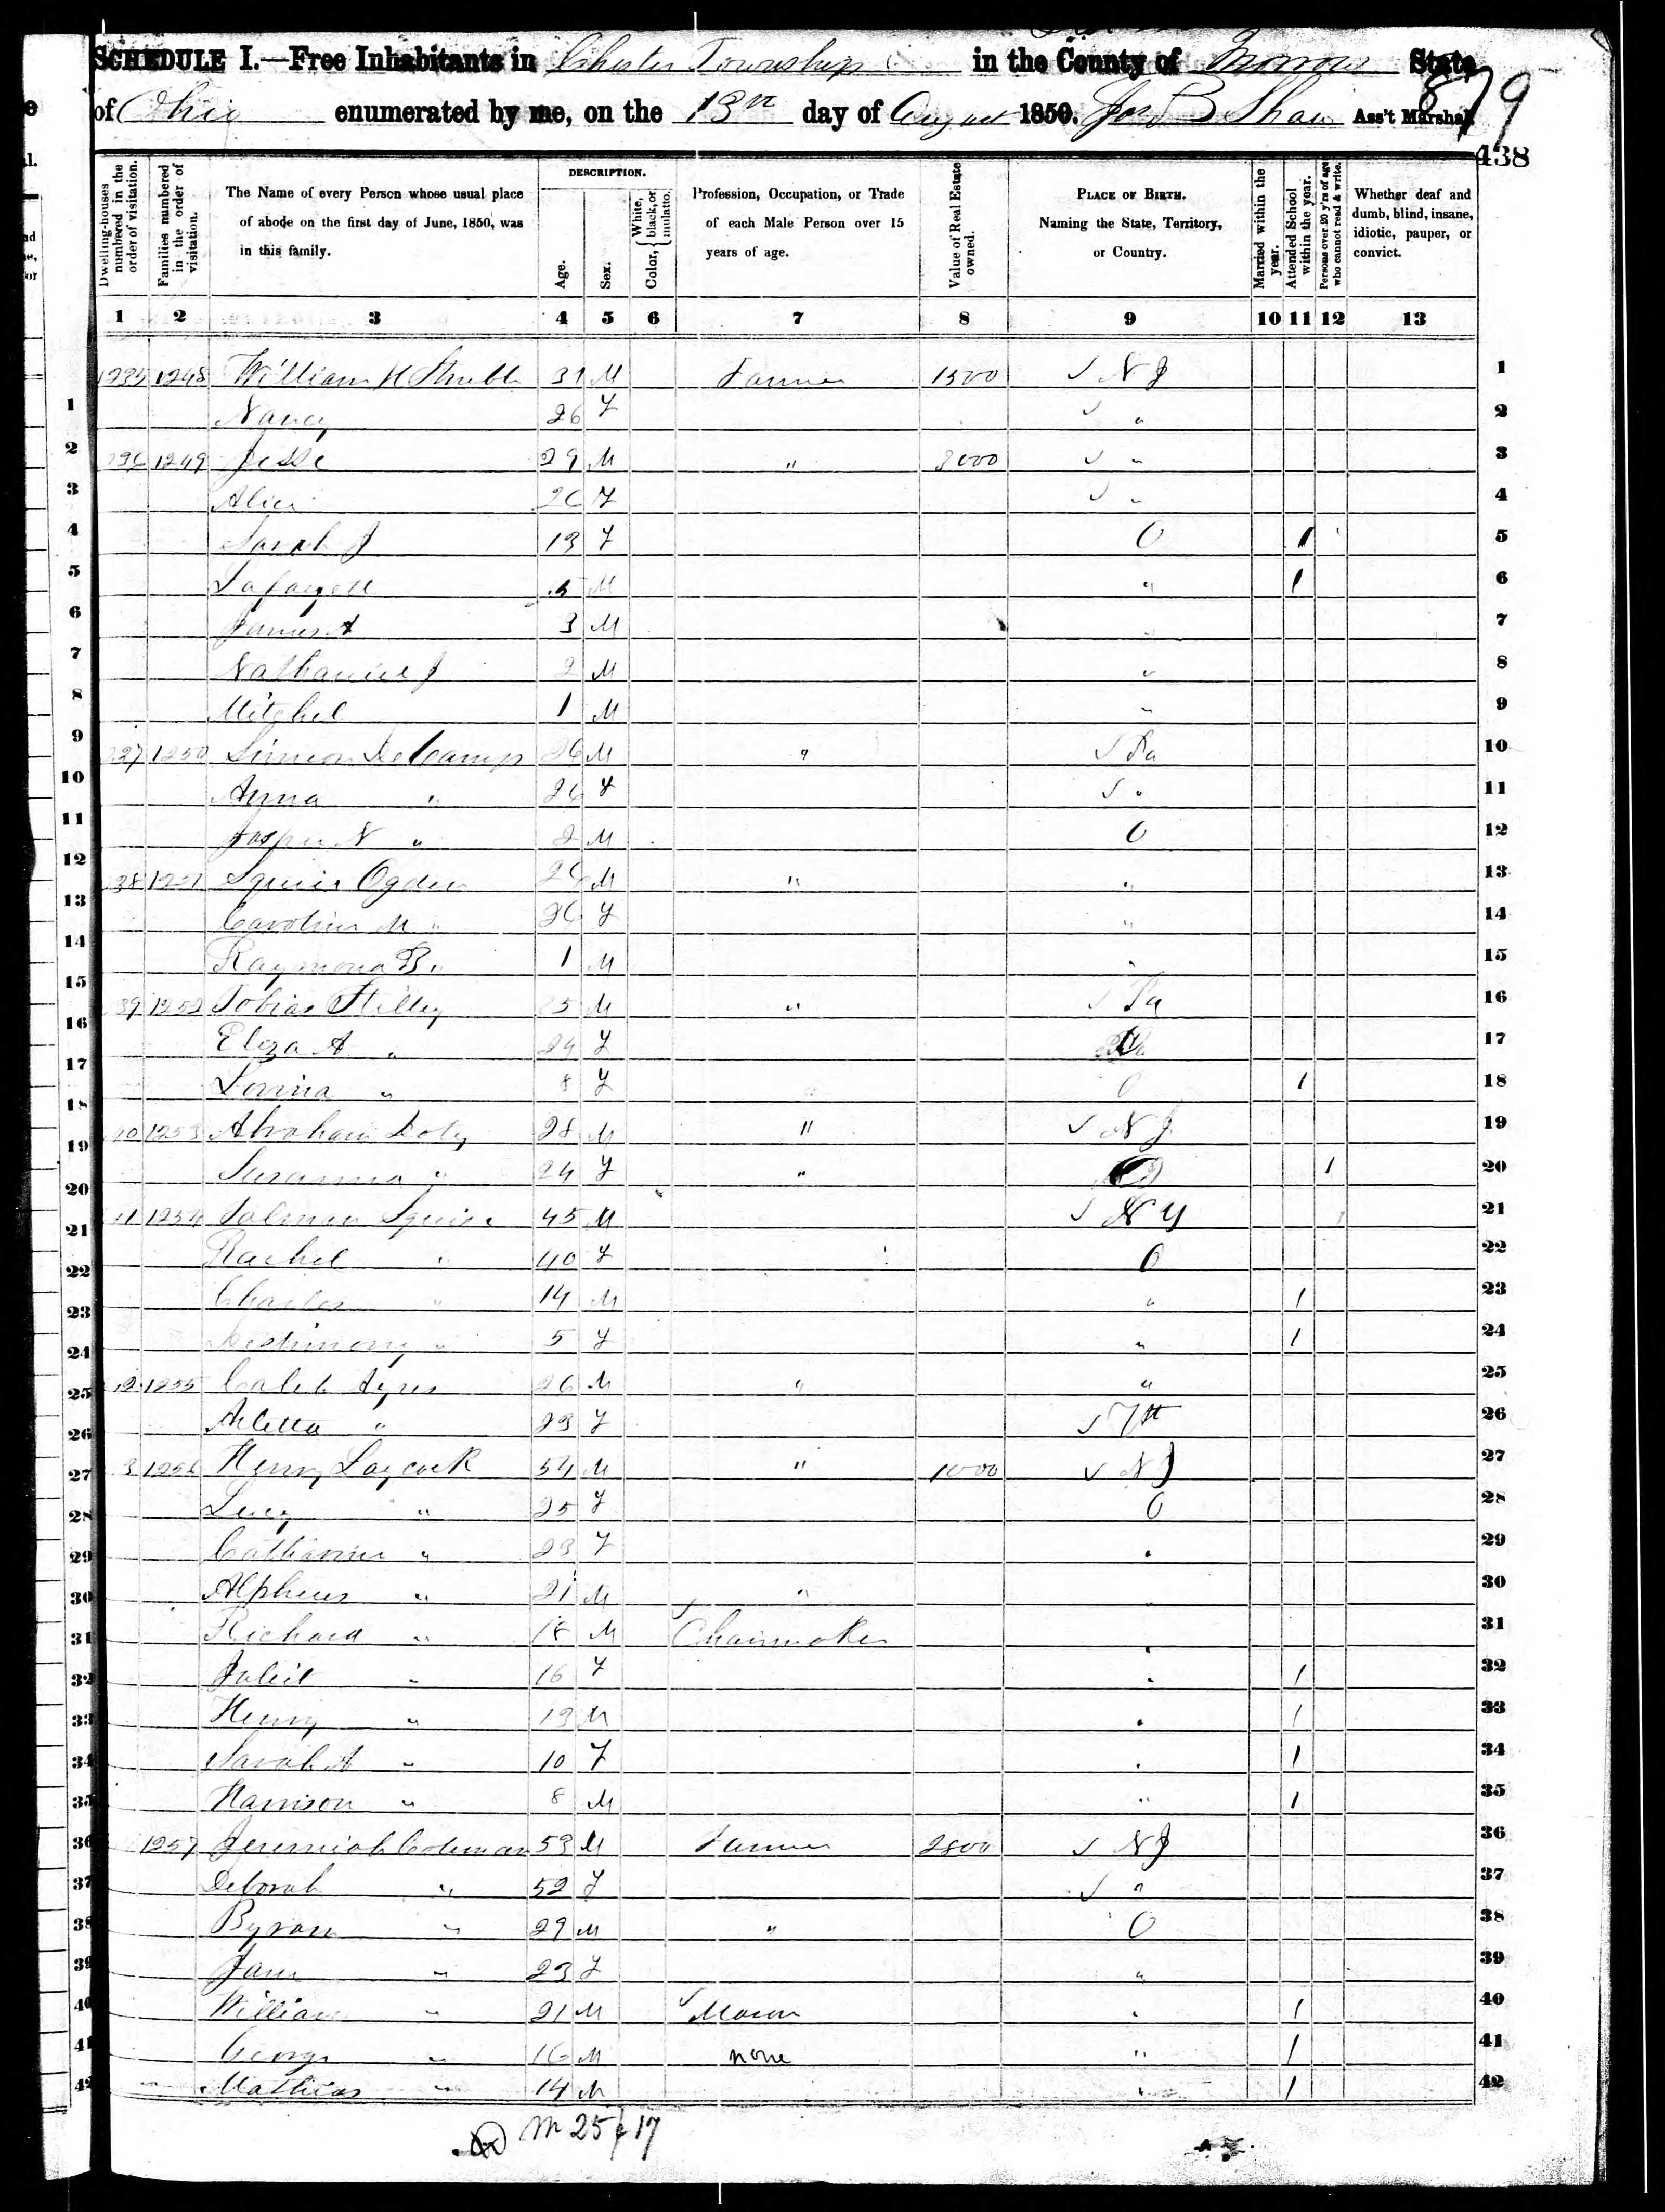 SCHEDULE I.—Free Inhabitants in Chester Township in the County of Morrow State
of Ohio enumerated by me, on the 13th day of August 1850. Jos B Shaw Ass't Marshal.
879
438
Dwelling-houses numbered in the order of visitation.
Families numbered in the order of visitation.
The Name of every Person whose usual place of abode on the first day of June, 1850, was in this family.
DESCRIPTION.
Age.
Sex.
Color, { White, black, or mulatto.
Profession, Occupation, or Trade of each Male Person over 15 years of age.
Value of Real Estate owned.
PLACE OF BIRTH. Naming the State, Territory, or Country.
Married within the year.
Attended School within the year.
Persons over 20 y'rs of age who cannot read & write.
Whether deaf and dumb, blind, insane, idiotic, pauper, or convict.
1 2 3 4 5 6 7 8 9 10 11 12 13
1235 1248 William H Struble 31 M Farmer 1500 ✓ N J 1
1 Nancy 26 F ✓ " 2
2 236 1249 Jesse 29 M " 3000 ✓ " 3
3 Alice 26 F ✓ " 4
4 Sarah J 13 F O 1 5
5 Lafayett 5 M " 1 6
6 James A 3 M " 7
7 Nathaniel J 2 M " 8
8 Mitchel 1 M " 9
9 237 1250 Simeon DeCamp 26 M " ✓ Pa 10
10 Anna " 26 F ✓ " 11
11 Jasper N " 2 M O 12
12 38 1251 Squier Ogden 26 M " " 13
13 Caroline M " 26 F " 14
14 Raymond B " 1 M " 15
15 39 1252 Tobias Stilley 25 M " ✓ Pa 16
16 Eliza A " 24 F O 17
17 Lovina " 8 F O 1 18
18 40 1253 Abraham Doty 28 M " ✓ N J 19
19 Susanna " 24 F " O 1 20
20 41 1254 Salmon Squier 45 M ✓ N Y 21
21 Rachel " 40 F O 22
22 Charles " 14 M " 1 23
23 " 5 F " 1 24
24 42 1255 Caleb Ayres 26 M " " 25
25 Arletta " 23 F ✓ 26
26 3 1256 Henry Laycock 54 M " 1000 ✓ N J 27
27 Lucy " 25 F O 28
28 Catharine " 23 F " 29
29 Alpheus " 21 M " " 30
30 Richard " 18 M ✓ Chairmaker " 31
31 Juliet " 16 F " 1 32
32 Henry " 13 M " 1 33
33 Sarah A " 10 F " 1 34
34 Harrison " 8 M " 1 35
35 1257 Jeremiah Coleman 53 M Farmer 2800 ✓ N J 36
36 Deborah " 52 F ✓ " 37
37 Byron " 29 M " O 38
38 Jane " 23 F " 39
39 William " 21 M ✓ Mason " 1 40
40 George " 16 M none " 1 41
41 Mathias " 14 M " 1 42
42
M 25 f 17